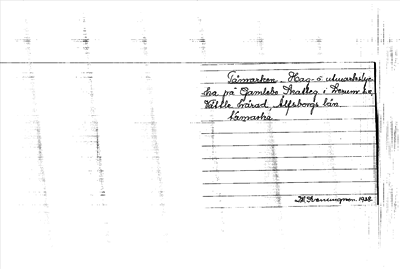 Tåmarken. Hag- o utmarkslyc-
ka på Gamlebo Skatteg i Lerum sn,
Vättle härad, Älfsborgs län.
tåmarka
1928.